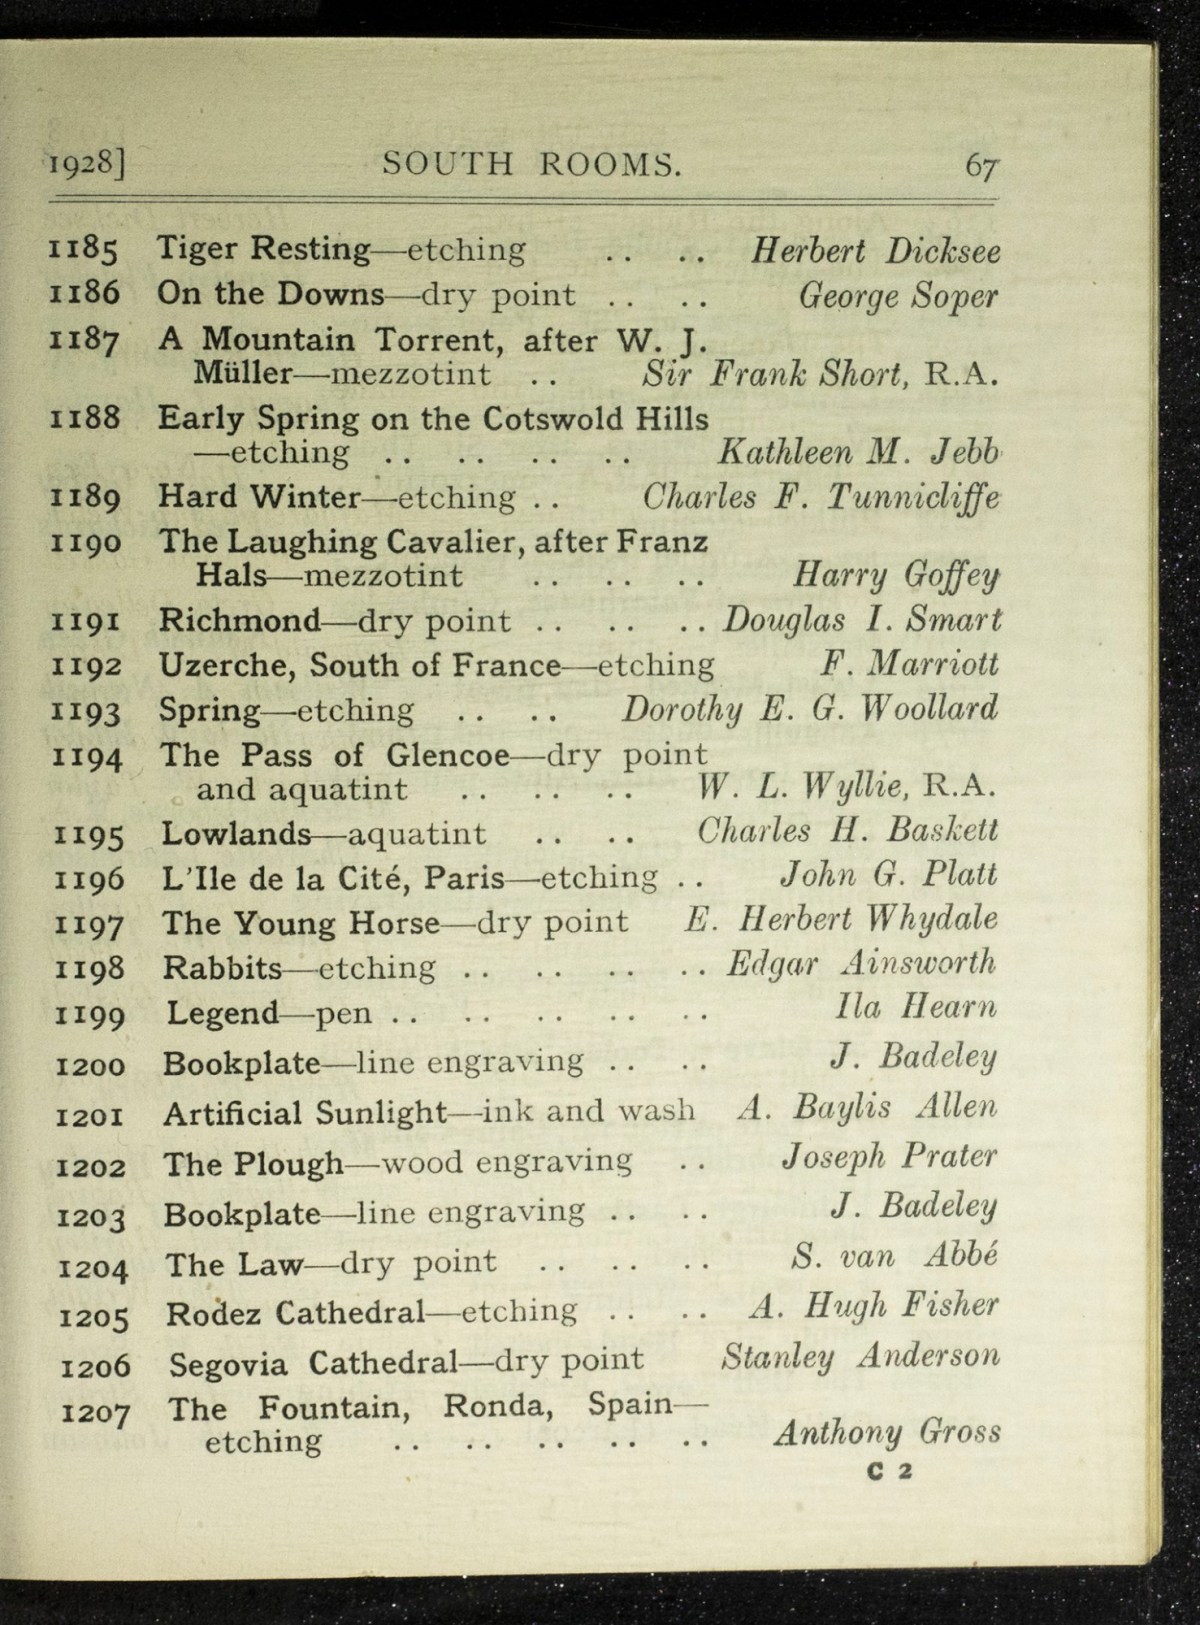 1928] SOUTH ROOMS. 67
1185 Tiger Resting—etching .. .. Herbert Dicksee
1186 On the Downs—dry point .. .. George Soper
1187 A Mountain Torrent, after W. J.
Müller—mezzotint .. Sir Frank Short, R.A.
1188 Early Spring on the Cotswold Hills
—etching .. .. .. .. Kathleen M. Jebb
1189 Hard Winter—etching .. Charles F. Tunnicliffe
1190 The Laughing Cavalier, after Franz
Hals—mezzotint .. .. .. Harry Goffey
1191 Richmond—dry point .. .. .. Douglas I. Smart
1192 Uzerche, South of France—etching F. Marriott
1193 Spring—etching .. .. Dorothy E. G. Woollard
1194 The Pass of Glencoe—dry point
and aquatint .. .. .. W. L. Wyllie, R.A.
1195 Lowlands—aquatint .. .. Charles H. Baskett
1196 L'Ile de la Cité, Paris—etching .. John G. Platt
1197 The Young Horse—dry point E. Herbert Whydale
1198 Rabbits—etching .. .. .. .. Edgar Ainsworth
1199 Legend—pen .. .. .. .. .. Ila Hearn
1200 Bookplate—line engraving .. .. J. Badeley
1201 Artificial Sunlight—ink and wash A. Baylis Allen
1202 The Plough—wood engraving .. Joseph Prater
1203 Bookplate—line engraving .. .. J. Badeley
1204 The Law—dry point .. .. .. S. van Abbé
1205 Rodez Cathedral—etching .. .. A. Hugh Fisher
1206 Segovia Cathedral—dry point Stanley Anderson
1207 The Fountain, Ronda, Spain—
etching .. .. .. .. .. Anthony Gross
C 2